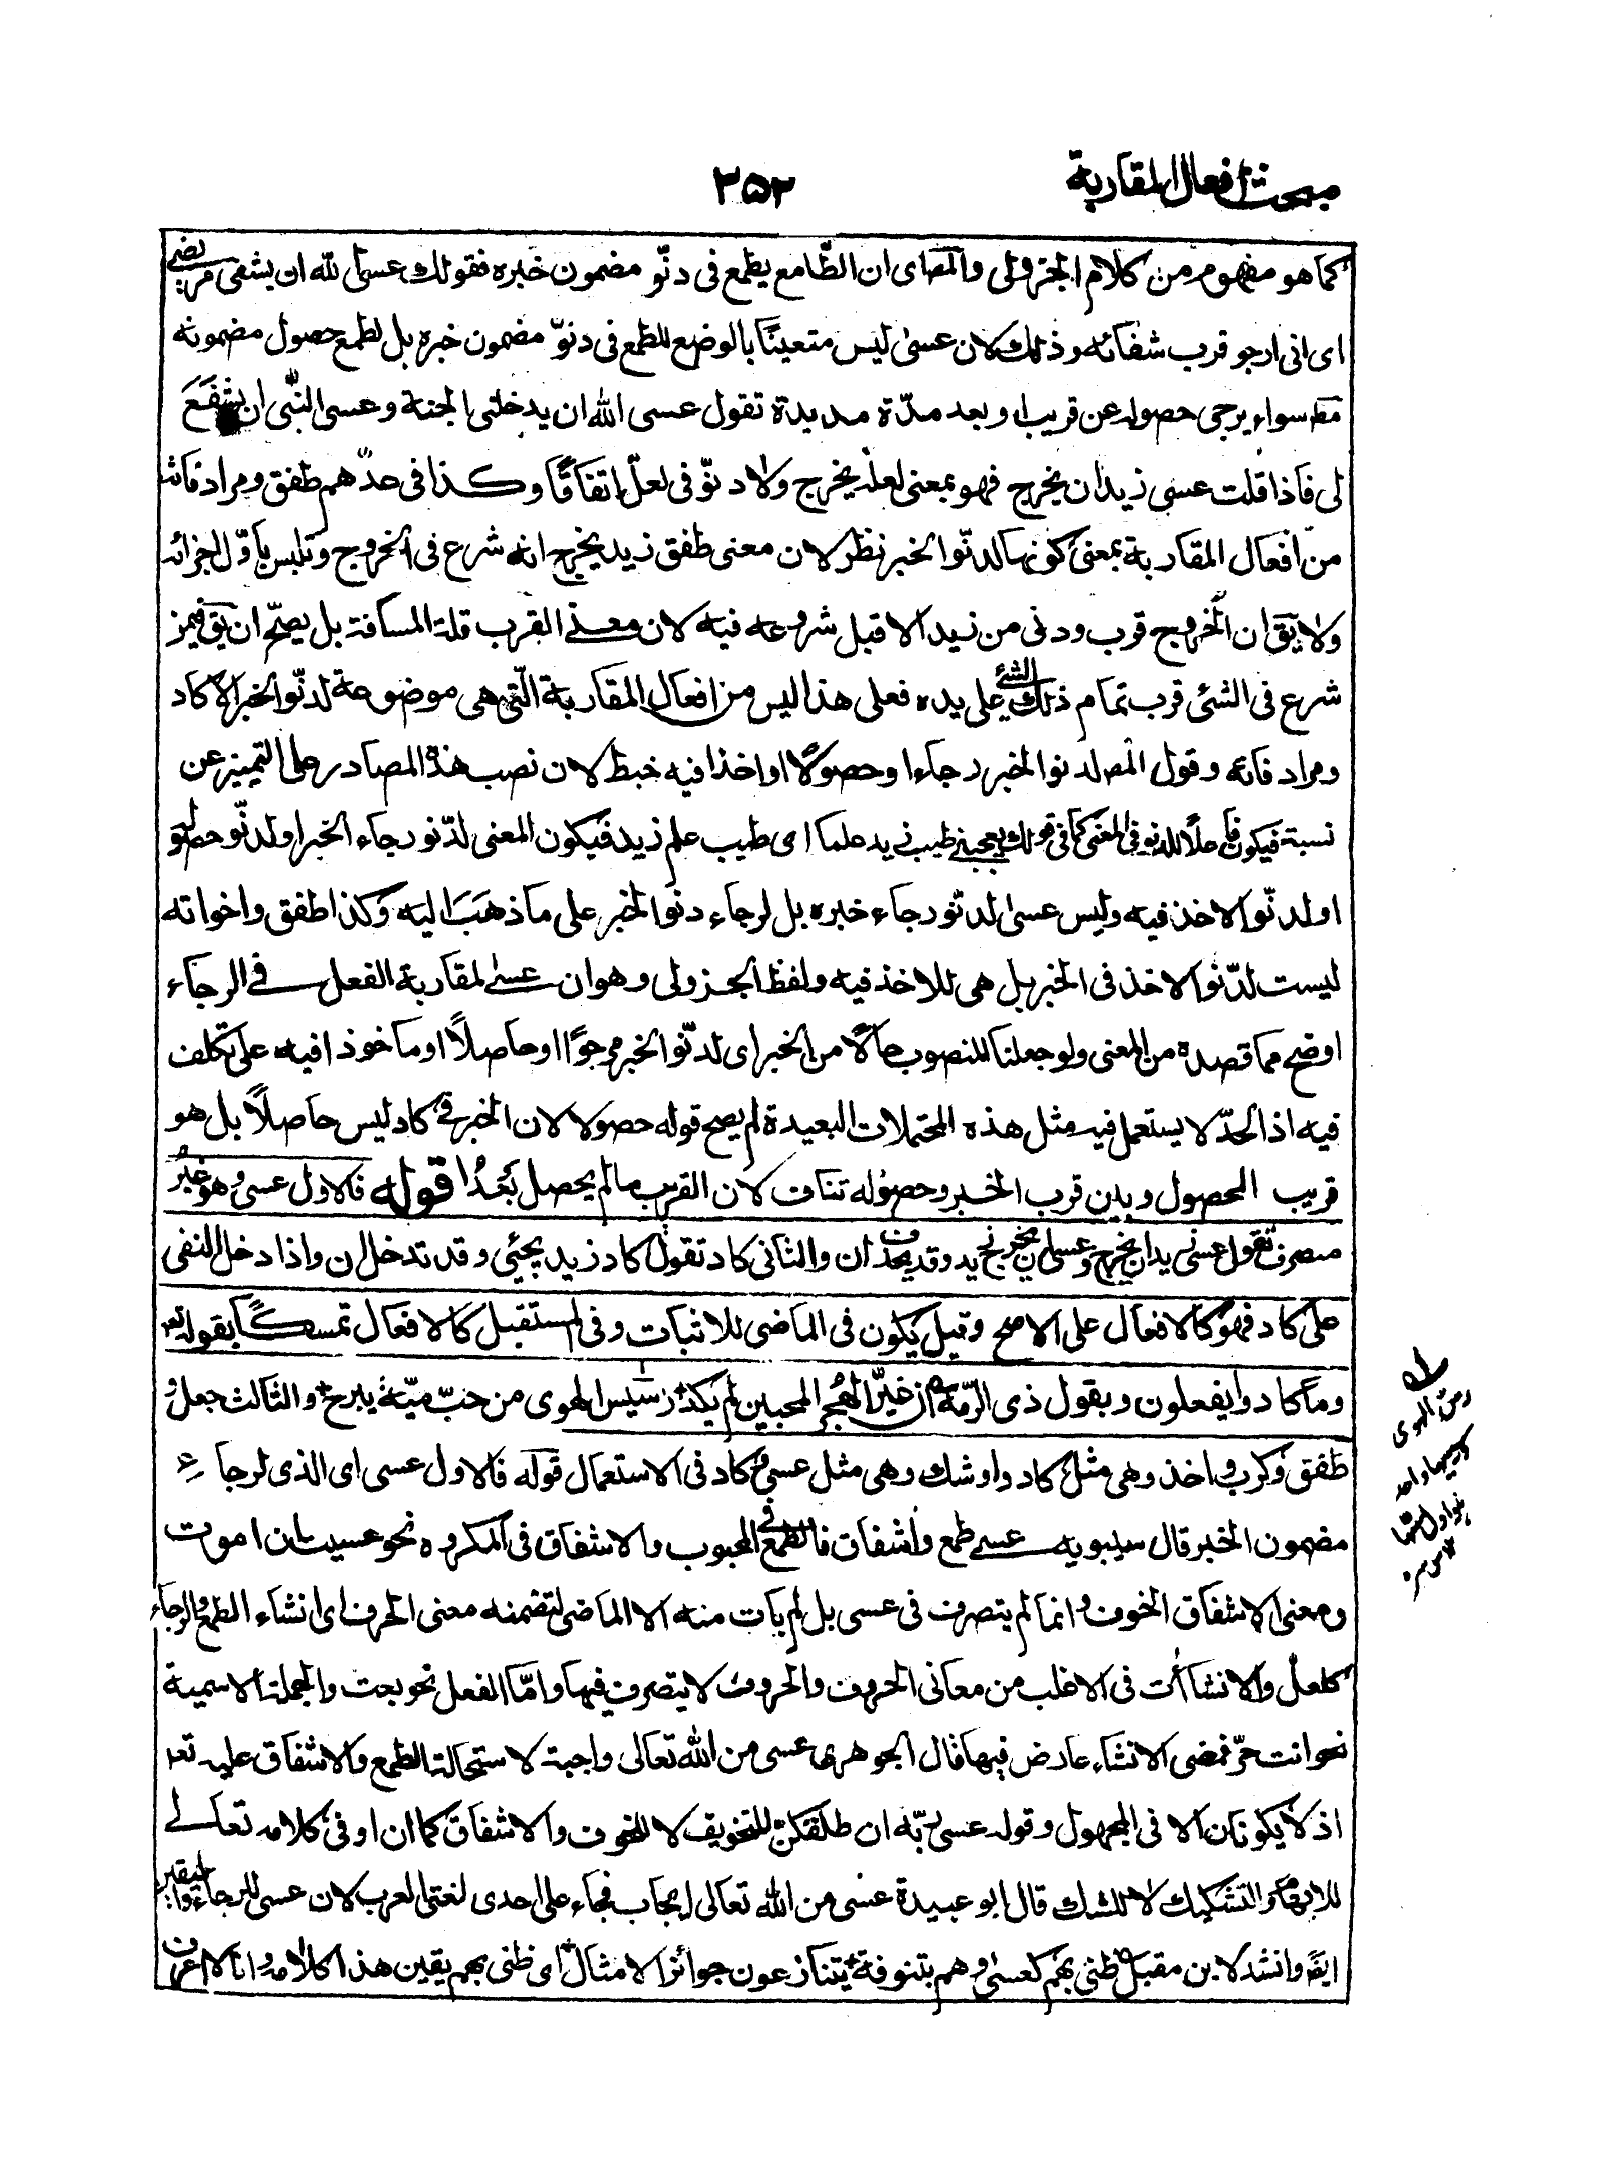 مبحث افعال المقاربة
٣٥٢
كما هو مفهوم من كلام الجزولى والمص اى ان الطّامع يطمع فى دنوّ مضمون خبره فقولك عسى الله ان يشفى مريضى
اى انى ارجو قرب شفائه وذلك لان عسى ليس متعينًا بالوضع للطمع فى دنوّ مضمون خبره بل لطمع حصول مضمونه
مط سواء يرجى حصوله عن قريب او بعد مدّة مديدة تقول عسى الله ان يدخلنى الجنة وعسى النّبى ان يشفَعَ
لى فاذا قلت عسى زيد ان يخرج فهو بمعنى لعله يخرج ولا دنوّ فى لعلّ اتفاقًا وكذا فى عدّهم طفق ومرادفاته
من افعال المقاربة بمعنى كونها لدنّو الخبر نظر لان معنى طفق زيد يخرج انه شرع فى الخروج وتلبس باوّل اجزائه
ولا يق ان الخروج قرب ودنى من زيد الا قبل شروعه فيه لان معنى القرب قلة المسافة بل يصحّ ان يق فيمن
شرع فى الشئ قرب تمام ذلك الشئ على يده فعلى هذا ليس من افعال المقاربة التّى هى موضوعة لدنّو الخبر الا كاد
ومرادفاته وقول المص لدنو الخبر رجاءا وحصولًا او اخذا فيه خبط لان نصب هذه المصادر على التميز عن
نسبة فيكون فاعلًا للدنو فى المعنى كما فى قولك يعجبنى طيب زيد علما اى طيب علم زيد فيكون المعنى لدّنو رجاء الخبر او لدنّو حصوله
او لدنّو الاخذ فيه وليس عسى لدنّو رجاء خبره بل لرجاء دنوّ الخبر على ما ذهبَ اليه وكذا طفق واخواته
ليست لدّنو الاخذ فى الخبر بل هى للاخذ فيه ولفظ الجزولى وهو ان عسى لمقاربة الفعل فى الرجاء
اوضح مما قصده من المعنى ولو جعلنا المنصوب حالًا من الخبر اى لدنّو الخبر مرجوًا او حاصلًا او ماخوذا فيه على تكلف
فيه اذ الحدّ لا يستعمل فيه مثل هذه المحتملات البعيدة لم يصح قوله حصولا لان الخبر فى كاد ليس حاصلًا بل هو
قريب الحصول وبين قرب الخبر وحصوله تناف لان القريب ما لم يحصل بَعْدُ قوله فالاول عسى وهو غير
متصرف تقول عسى زيد ان يخرج وعسى ان يخرج زيد وقد يحذف ان والثانى كاد تقول كاد زيد يجيئى وقد تدخل ان واذا دخل النفى
على كاد فهو كالافعال على الاصح وقيل يكون فى الماضى للاثبات وفى المستقبل كالافعال تمسكًا بقوله تعه
وما كادوا يفعلون وبقول ذى الرّمة اذا غيّر الهجر المحبين لم يكد رسيس الهوى من حبّ ميّة يبرح والثالث جعل و
طفق وكرب واخذ وهى مثل كاد واوشك وهى مثل عسى وكاد فى الاستعمال قوله فالاول عسى اى الذى لرجاء
مضمون الخبر قال سيبويه عسى طمع واشفاق فالطمع فى المحبوب والاشفاق فى المكروه نحو عسيت ان اموت
ومعنى الاشفاق الخوف وانما لم يتصرف فى عسى بل لم يأت منه الا الماضى لتضمنه معنى الحرف اى انشاء الطمع والرجاء
كلعل والانشاآت فى الاغلب من معانى الحروف والحروف لا يتصرف فيها وامّا الفعل نحو بعت والجملة الاسمية
نحو انت حرّ فمعنى الانشاء عارض فيها قال الجوهرى عسى من الله تعالى واجبة لاستحالة الطمع والاشفاق عليه تعه
اذ لا يكونان الا فى المجهول وقوله عسى ربّه ان طلقكنّ للتخويف لا للخوف والاشفاق كما ان او فى كلامه تعالى
للابهام والتشكيك لا للشك قال ابو عبيدة عسى من الله تعالى ايجاب فجاء على احدى لغتى العرب لان عسى للرجاء واليقين
ايض وانشد لابن مقبل ظنى بهم كعسى وهم بتنوفة يتنازعون جوائز الامثال اى ظنى بهم يقين هذا كلامه وانا لا اعرف